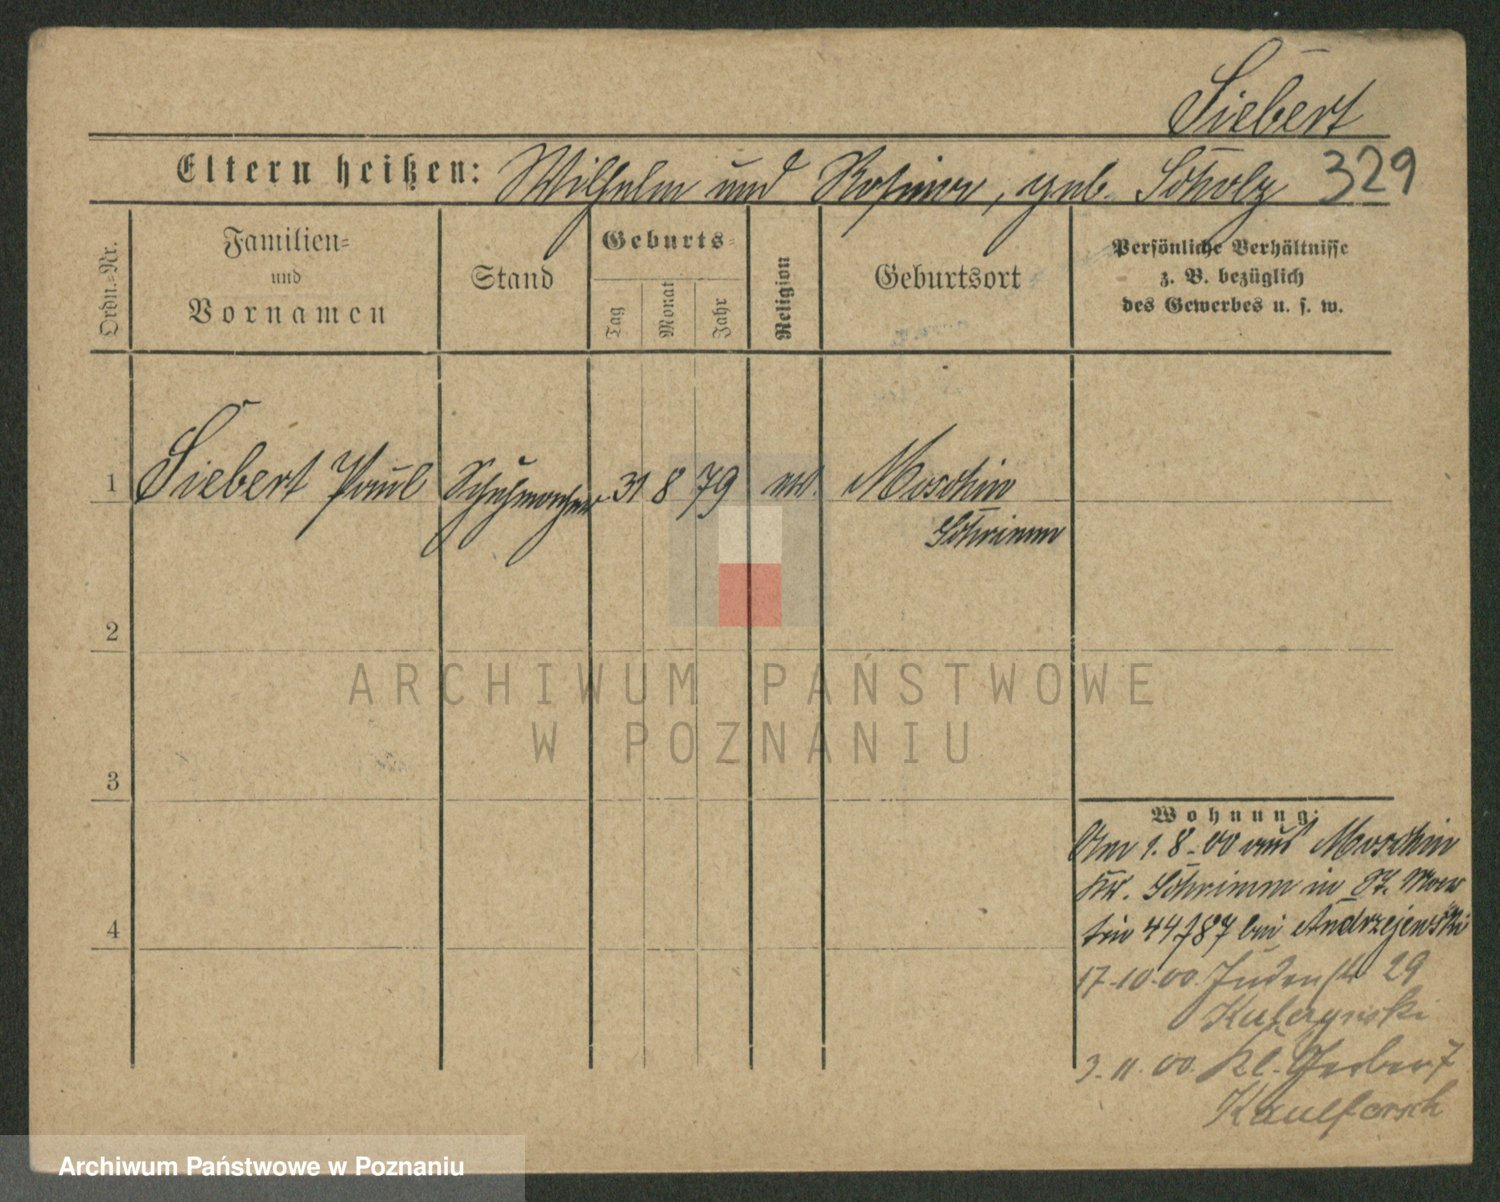 Siebert
Eltern heißen: Wilhelm und Rosina, geb. Scholz 329
Ordn.-Nr.
Familien- und Vornamen
Stand
Geburts-
Tag
Monat
Jahr
Religion
Geburtsort
Persönliche Verhältnisse
z. B. bezüglich
des Gewerbes u. s. w.
1 Siebert Paul Schuhmacher 31 8 79 ev. Moschin
Schrimm
2
3
4
ARCHIWUM PAŃSTWOWE
W POZNANIU
Wohnung:
Am 1.8.00 aus Moschin
Kr. Schrimm in St. Mar
tin bei Andrzejewski
17.10.00. Judenstr 29
3.11.00. Kl. Gerberst 7
Archiwum Państwowe w Poznaniu